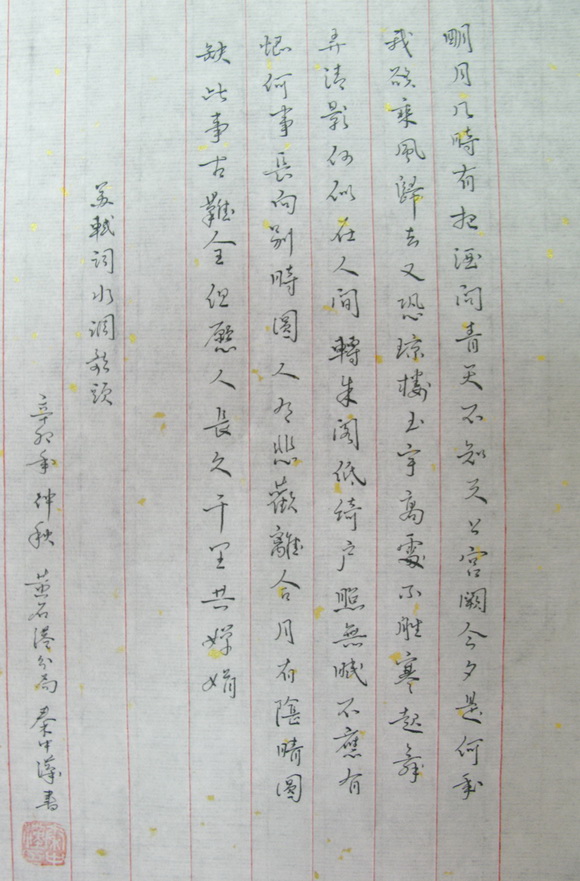 明月几時有把酒问青天不知天上宫阙今夕是何年
我欲乘風歸去又恐琼樓玉宇高處不胜寒起舞
弄清影何似在人间轉朱阁低绮户照無眠不應有
恨何事長向别時圆人有悲歡離合月有陰晴圆
缺此事古難全但愿人長久千里共婵娟
苏軾词水调歌頭
辛卯年仲秋 黄石港分局 秦中汉書